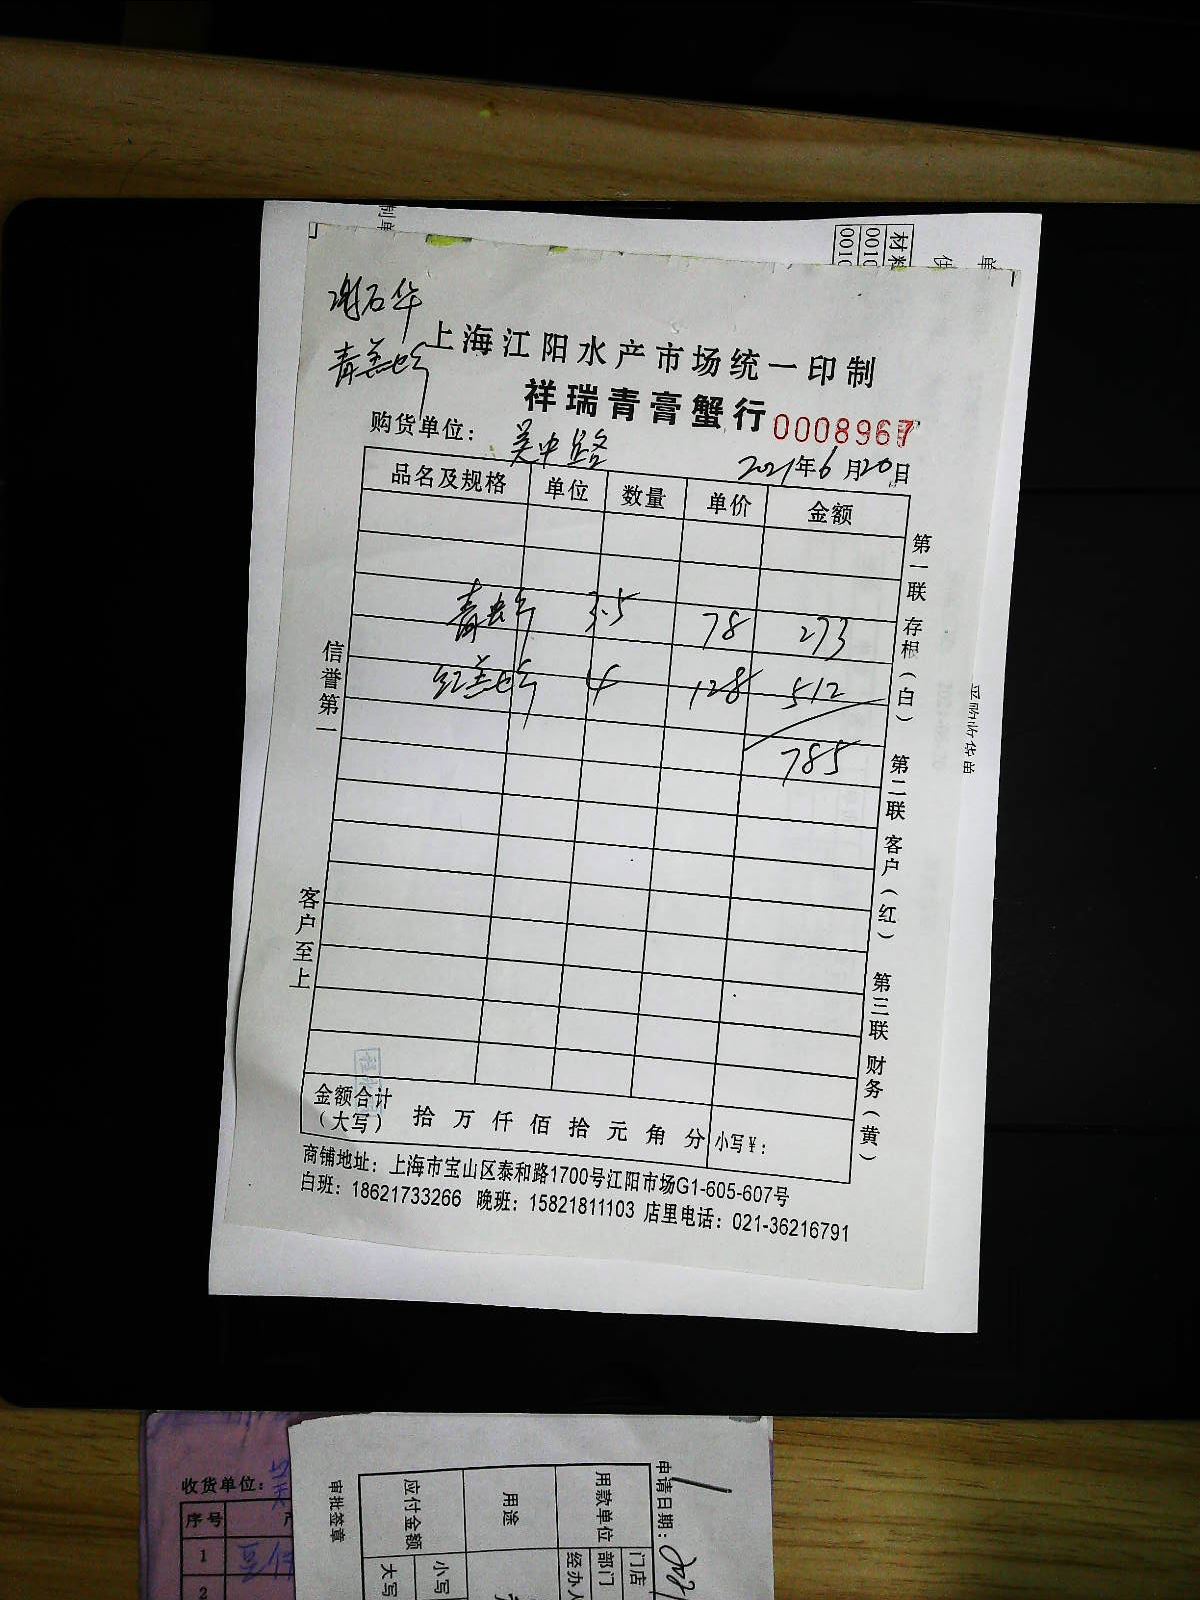 制单
材料
0010
0010
单
谢石华
上海江阳水产市场统一印制
祥瑞青膏蟹行 0008967
购货单位: 吴中路 2021年6月20日
品名及规格 单位 数量 单价 金额
3.5 78 273
4 128 512
785
信誉第一
客户至上
第一联 存根(白) 第二联 客户(红) 第三联 财务(黄)
采购收货单
金额合计
(大写) 拾 万 仟 佰 拾 元 角 分 小写¥:
商铺地址: 上海市宝山区泰和路1700号江阳市场G1-605-607号
白班: 18621733266 晚班: 15821811103 店里电话: 021-36216791
收货单位:
序号
1
2
申请日期: 2021
用款单位 门店 部门 经办人
用途
应付金额 小写 大写
审批签章